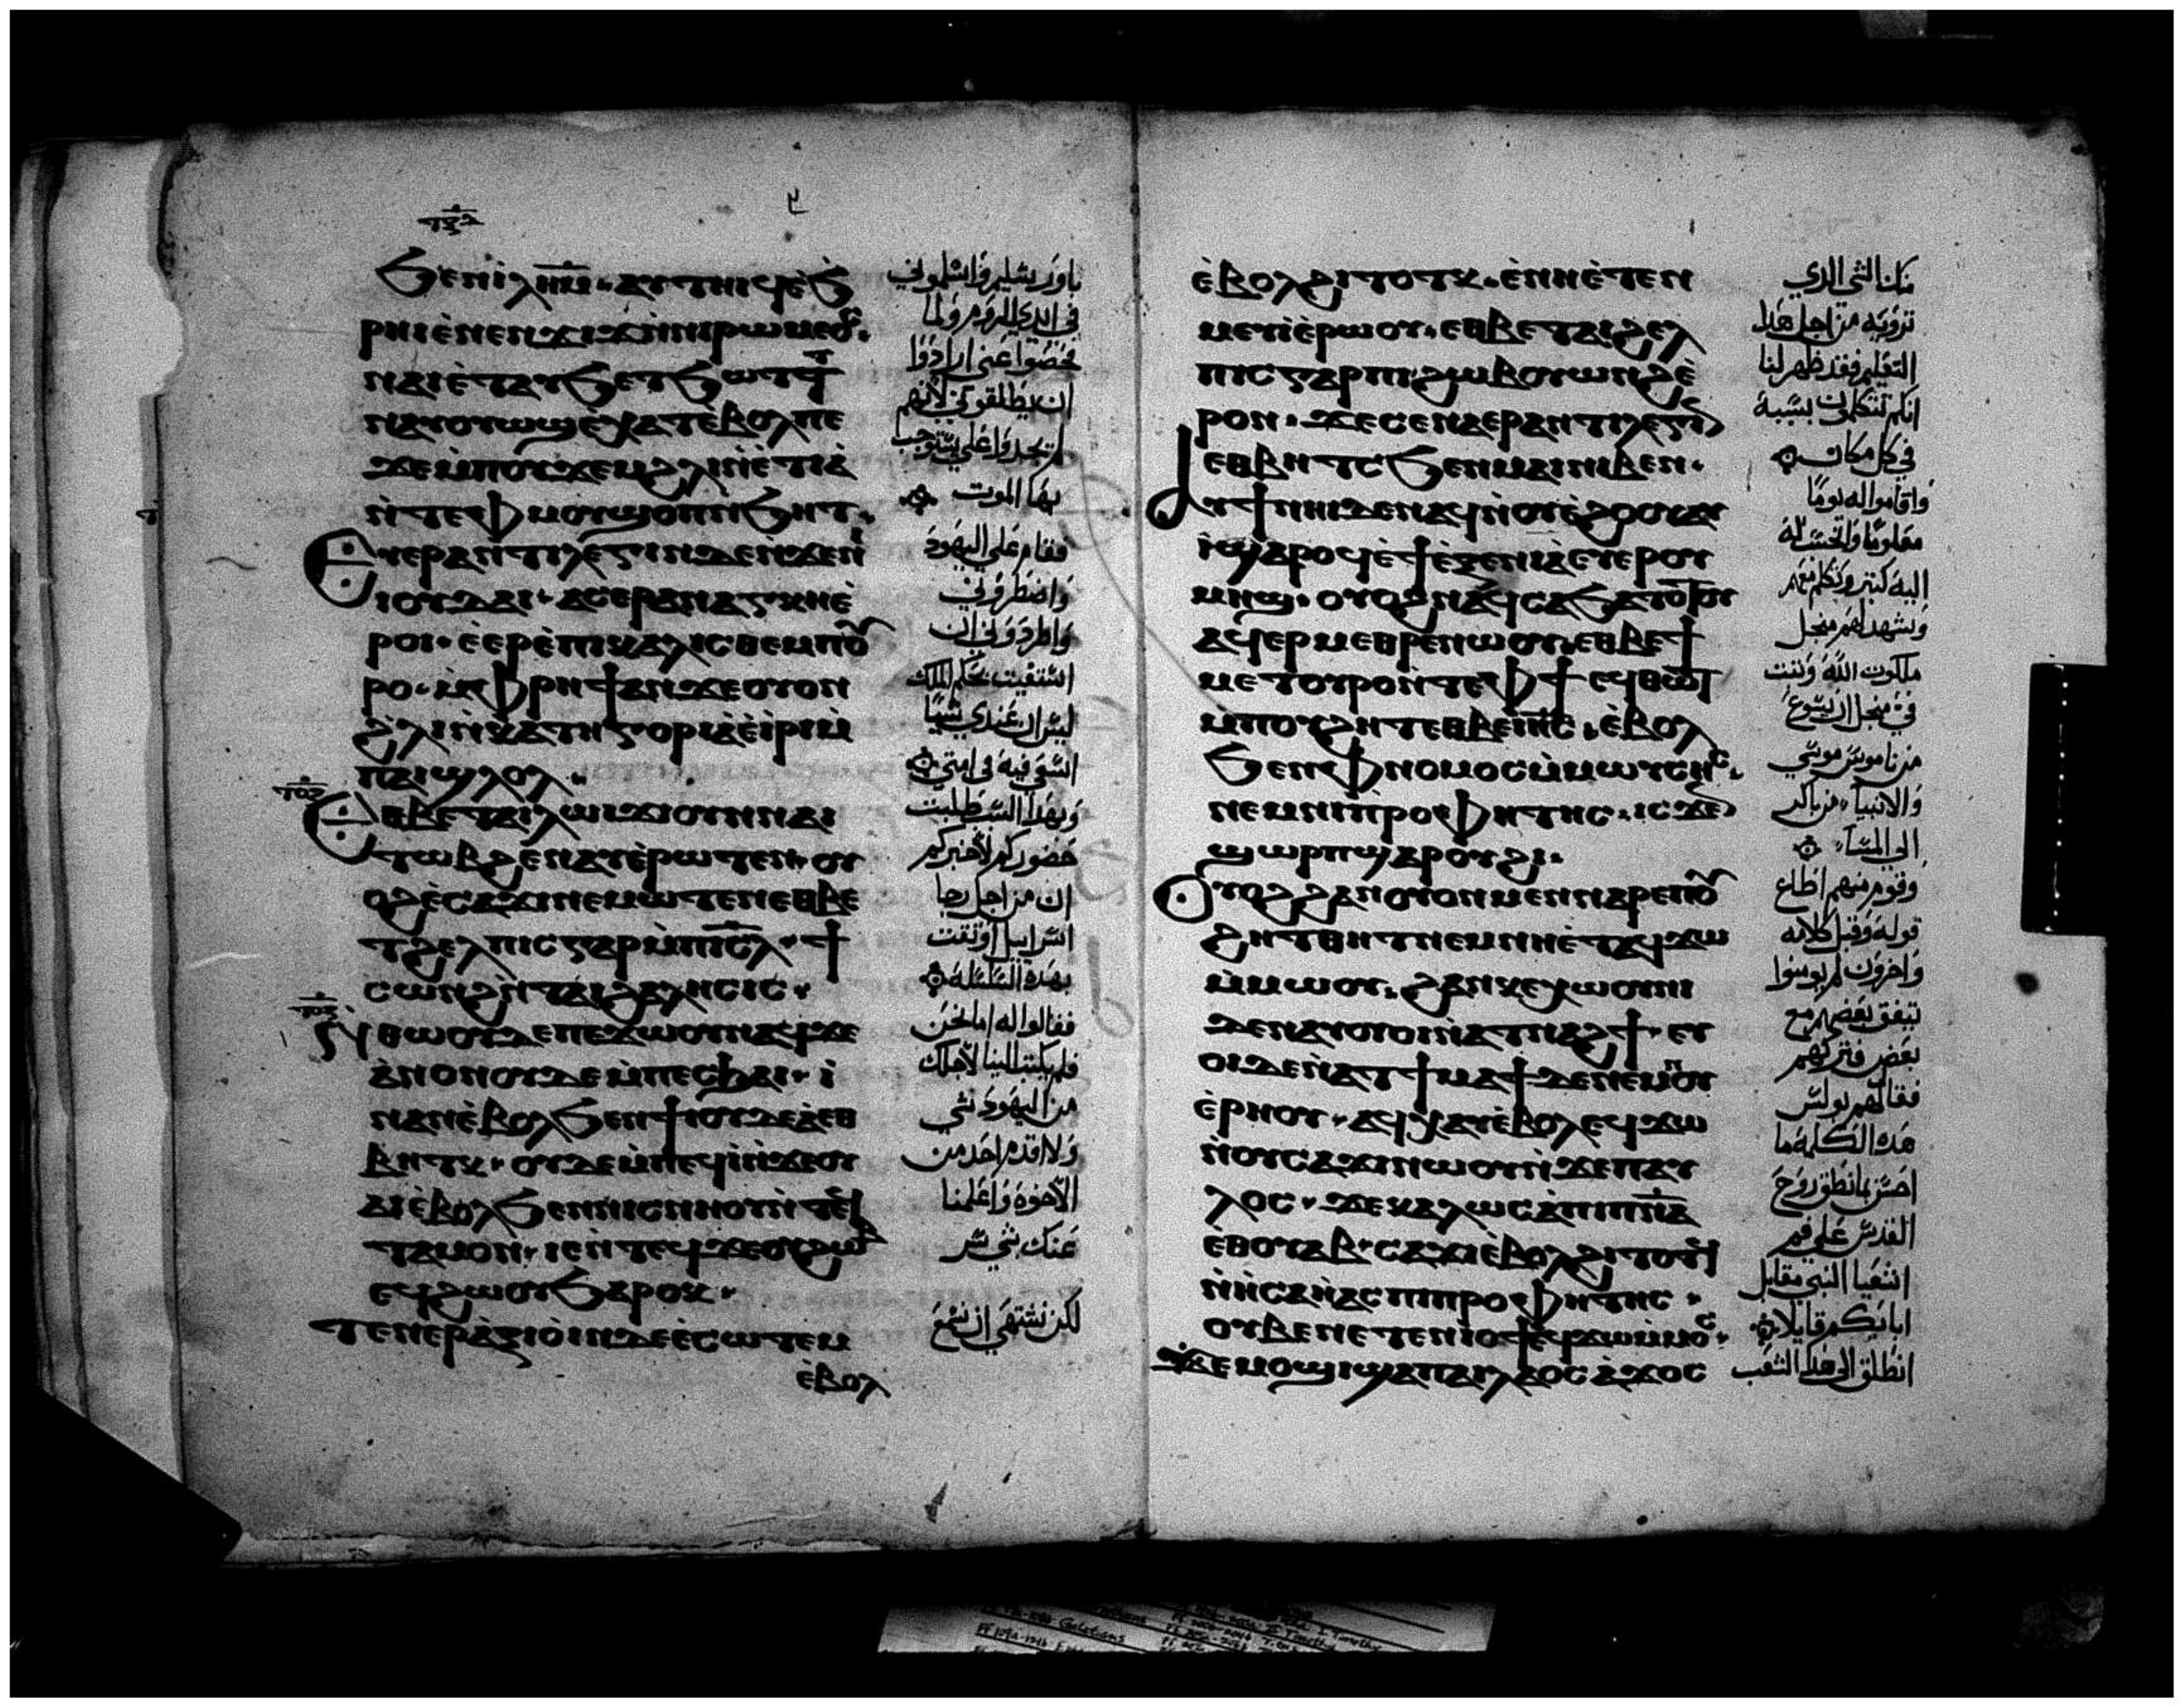 ϧⲉⲛⲓⲗⲏⲙ · ⲁⲩⲧⲏⲓϥ ⲉ̀ϧ
ⲣⲏⲓ ⲉ̀ⲛⲉⲛϫⲓϫ ⲛ̀ⲛⲓⲣⲱⲙⲉⲟⲥ ·
ⲛⲁⲓ ⲉ̀ⲧⲁⲩϧⲉⲧϧⲱⲧⲧ
ⲛⲁⲩⲟⲩⲱϣ ⲉ̀ⲭⲁⲧ ⲉ̀ⲃⲟⲗ ⲡⲉ
ϫⲉ ⲙ̀ⲡⲟⲩϫⲉⲙ ϩⲗⲓ ⲛ̀ⲉⲧⲓⲁ̀
ⲛ̀ⲧⲉ ⲫⲙⲟⲩ ϣⲟⲡ ⲛ̀ϧⲏⲧ ·
ⲉⲩⲉⲣⲁⲛⲧⲓⲗⲉⲅⲓⲛ ⲇⲉ ⲛ̀ϫⲉ ⲛⲓ
ⲓⲟⲩⲇⲁⲓ · ⲁⲥⲉⲣⲁⲛⲁⲅⲕⲏ ⲉ̀
ⲣⲟⲓ · ⲉ̀ⲉⲣⲉ̀ⲡⲓⲕⲁⲗⲓⲥⲑⲉ ⲙ̀ⲡⲟⲩ
ⲣⲟ · ⲙ̀ⲫⲣⲏϯ ⲁⲛ ϫⲉ ⲟⲩⲟⲛ
ϩⲗⲓ ⲛ̀ⲕⲁⲧⲏⲅⲟⲣⲓⲁ ⲉ̀ⲓ̀ⲣⲓ ⲙ̀
ⲡⲁϣⲗⲟⲗ ·
ⲉⲑⲃⲉ ⲧⲁⲓⲗⲱⲓϫⲓ ⲟⲩⲛ ⲛⲁⲓ
ⲧⲱⲃϩ ⲉ̀ⲛⲁⲩ ⲉ̀ⲣⲱⲧⲉⲛ · ⲟⲩ
ⲟϩ ⲉ̀ⲥⲁϫⲓ ⲛⲉⲙⲱⲧⲉⲛ ⲉⲑⲃⲉ
ⲧϩⲉⲗⲡⲓⲥ ⲅⲁⲣ ⲙ̀ⲡⲓⲥⲗ · ϯ
ⲥⲱⲛϩ ⲛ̀ⲧⲁⲓϩⲁⲗⲏⲥⲓⲥ ·
ⲛ̀ⲑⲱⲟⲩ ⲇⲉ ⲡⲉϫⲱⲟⲩ ⲛⲁϥ ϫⲉ
ⲁ̀ⲛⲟⲛ ⲟⲩⲇⲉ ⲙ̀ⲡⲉⲥϧⲁⲓ · ⲓ̀
ⲛⲁⲛ ⲉ̀ⲃⲟⲗϧⲉⲛ ϯⲓⲟⲩⲇⲉⲁ̀ ⲉⲑ
ⲃⲏⲧⲕ · ⲟⲩⲇⲉ ⲙ̀ⲡⲉϥⲓ̀ ⲛ̀ϫⲉ ⲟⲩ
ⲁⲓ ⲉ̀ⲃⲟⲗϧⲉⲛ ⲛⲓⲥⲛⲏⲟⲩ ⲛ̀ⲧⲉϥ
ⲧⲁⲙⲟⲛ · ⲓⲉ ⲛ̀ⲧⲉϥϫⲉ ⲟⲩϩⲱⲃ
ⲉϥϩⲱⲟⲩ ϧⲁⲣⲟⲕ ·
ⲧⲉⲛⲉⲣⲁ̀ⲝⲓⲟⲓⲛ ⲇⲉ ⲉ̀ⲥⲱⲧⲉⲙ
ⲉ̀ⲃⲟⲗ
باورشليم واسلموني
في ايدي الروم ولما
فحصوا عني ارادوا
ان يطلقوني لانهم
لم يجدوا علي يستوجب
بها الموت
فقام علي اليهود
واضطروني
الستغيث بحكم الملك
ليس ان عندي شيا
اسعي فيه في امتي
وبهذا السـ طلبت
حضوركم لاخبركم
ان من اجل رجا
اسرايل اوثقت
بهذه السلسله
فقالوا له اما نحن
فلم يكتب الينا لاجلك
من اليهود شي
ولا قدم احد من
الاخوه واعلمنا
عنك شي شر
لكن نشتهي ان نسمع
ⲉ̀ⲃⲟⲗϩⲓⲧⲟⲧⲕ · ⲉ̀ⲛⲏⲉ̀ⲧⲉⲕ
ⲙⲉⲩⲓ ⲉ̀ⲣⲱⲟⲩ · ⲉⲑⲃⲉ ⲧⲁⲓϩⲉⲗ
ⲡⲓⲥ ⲅⲁⲣ ⲡⲓϩⲱⲃ ⲟⲩⲱⲛϩ ⲉ̀
ⲣⲟⲛ · ϫⲉ ⲥⲉⲛⲁⲉⲣⲁⲛⲧⲓⲗⲉⲅⲓⲛ
ⲉⲑⲃⲏⲧⲥ ϧⲉⲛ ⲙⲁⲓ ⲛⲓⲃⲉⲛ ·
ⲁⲩϯⲛⲏⲓ ⲇⲉ ⲛⲁϥ ⲛ̀ⲟⲩⲉ̀ϩⲟⲟⲩ ⲁⲩ
ⲓ̀ ϣⲁⲣⲟϥ ⲉ̀ϯⲝⲉⲛⲓⲁ̀ ⲉⲩⲉⲣⲟⲩ
ⲙⲏϣ · ⲟⲩⲟϩ ⲛⲁϥⲥⲁϧⲁⲧⲟⲧⲟⲩ
ⲁϥⲉⲣⲙⲉⲑⲣⲉ ⲛⲱⲟⲩ ⲉⲑⲃⲉ ϯ
ⲙⲉⲧⲟⲩⲣⲟ ⲛ̀ⲧⲉ ⲫϯ ⲉϥⲑⲱⲧ
ⲙ̀ⲡⲟⲩϩⲏⲧ ⲉⲑⲃⲉ ⲓⲏⲥ · ⲉ̀ⲃⲟⲗ
ϧⲉⲛ ⲫⲛⲟⲙⲟⲥ ⲙ̀ⲙⲱⲩⲥⲏⲥ ·
ⲛⲉⲙ ⲛⲓⲡⲣⲟⲫⲏⲧⲏⲥ · ⲓⲥϫⲉⲛ
ϣⲱⲣⲡ ϣⲁ ⲣⲟⲩϩⲓ ·
ⲟⲩⲟϩ ϩⲁⲛⲟⲩⲟⲛ ⲙⲉⲛ ⲛⲁⲣⲉ ⲡⲟⲩ
ϩⲏⲧ ⲑⲏⲧ ⲡⲉ ⲙ̀ⲛⲏⲉ̀ⲧⲁϥϫⲱ
ⲙ̀ⲙⲱⲟⲩ · ϩⲁⲛⲕⲉⲭⲱⲟⲩⲛⲓ
ⲇⲉ ⲛⲁⲩⲟⲓ ⲟⲩⲛ ⲛ̀ⲁⲧⲛⲁϩϯ · ⲉⲩ
ⲟⲓ ⲇⲉ ⲛ̀ⲁⲧϯⲙⲁϯ ⲇⲉ ⲛⲉⲙ ⲛⲟⲩ
ⲉ̀ⲣⲏⲟⲩ · ⲁϥⲭⲁⲩ ⲉ̀ⲃⲟⲗ ⲉϥϫⲱ
ⲛ̀ⲟⲩⲥⲁϫⲓ ⲛⲱⲟⲩ ⲛ̀ϫⲉ ⲡⲁⲩ
ⲗⲟⲥ · ϫⲉ ⲕⲁⲗⲱⲥ ⲁ̀ ⲡⲓⲡⲛⲁ
ⲉⲑⲟⲩⲁⲃ · ⲥⲁϫⲓ ⲉ̀ⲃⲟⲗϩⲓⲧⲟⲧϥ
ⲛ̀ⲏⲥⲁⲏ̀ⲁⲥ ⲡⲓⲡⲣⲟⲫⲏⲧⲏⲥ ·
ⲟⲩⲃⲉ ⲛⲉⲧⲉⲛⲓⲟϯ ⲉϥϫⲱ ⲙ̀ⲙⲟⲥ ·
ϫⲉ ⲙⲟϣⲓ ϣⲁ ⲡⲁⲓⲗⲁⲟⲥ ⲁ̀ϫⲟⲥ
منك الشي الذي
ترويه من اجل هذا
التعليم فقد ظهر لنا
في كل مكان
واقاموا له يوما
معلوما
اليه كثير وتكلم معهم
وشهد لهم من اجل
ملكوت الله وثبت
من ناموس موسي
والانبيا من باكر
الي المسا
وقوم منهم اطاع
قوله وقبل كلامه
واخرون لم يومنوا
يتفق بعضهم مع
بعض فتركهم
فقال لهم بولس
هذه الكلمه ما
احسن ما نطق روح
القدس علي فم
اشعيا النبي مقابل
ابايكم قايلا
انطلق الي هذا الشعب